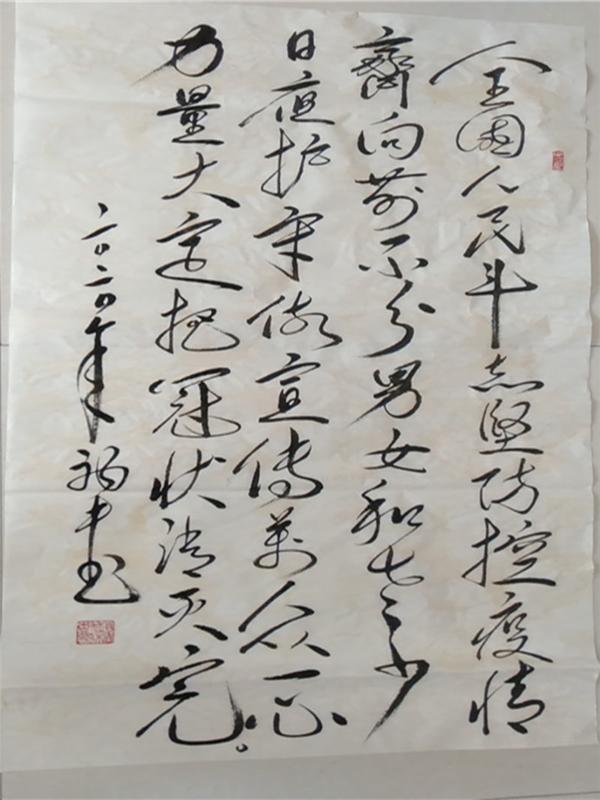 全国人民斗志坚防控疫情
齊向前不分男女和老少
日夜护守做宣传万众一心
力量大定把冠状消灭完。
二〇二〇年 中书